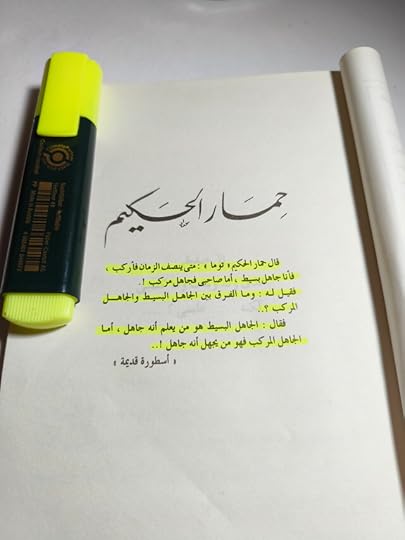 حمار الحكيم
قال حمار الحكيم « توما » : متى ينصف الزمان فأركب ،
فأنا جاهل بسيط ، أما صاحبى فجاهل مركب ! .
فقيل له : وما الفرق بين الجاهل البسيط والجاهل
المركب ؟ ..
فقال : الجاهل البسيط هو من يعلم أنه جاهل ، أما
الجاهل المركب فهو من يجهل أنه جاهل ! ..
« أسطورة قديمة »